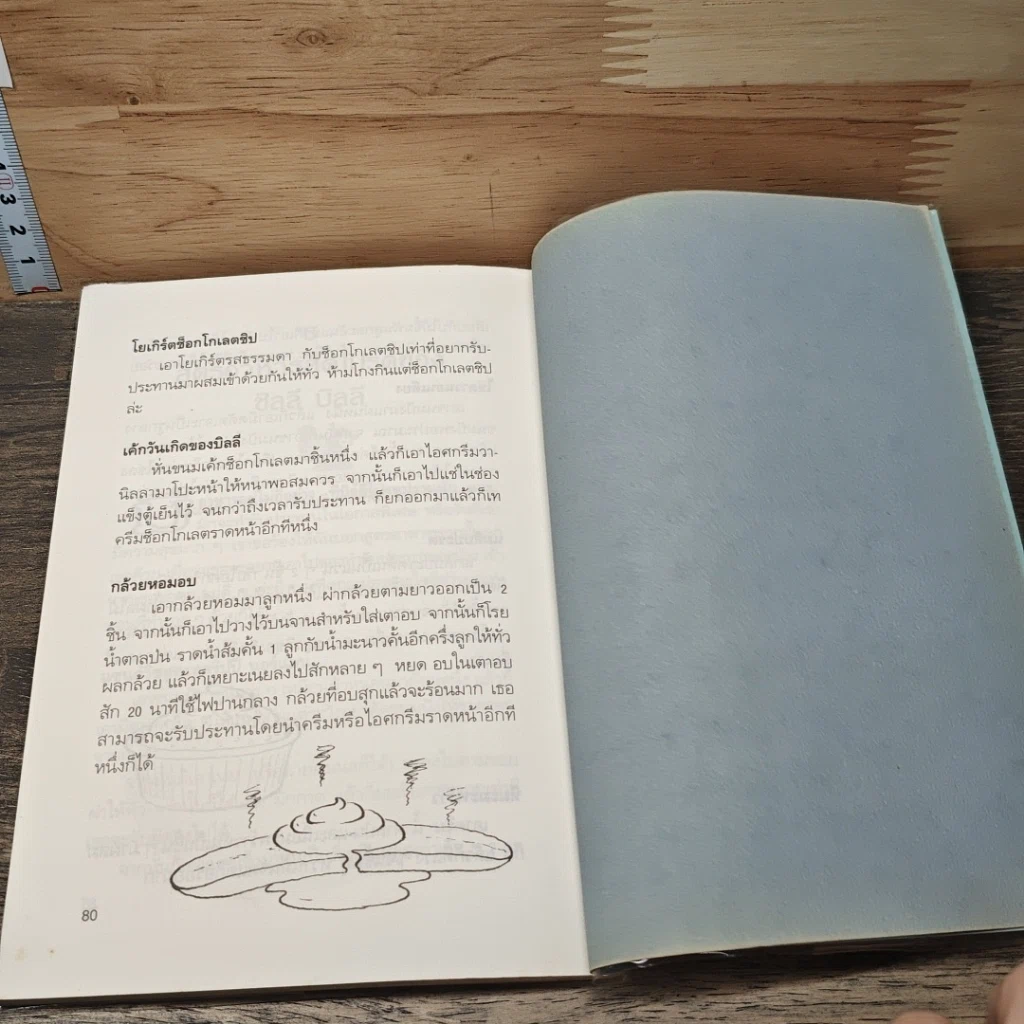 โยเกิร์ตช็อกโกเลตชิป
เอาโยเกิร์ตรสธรรมดา กับช็อกโกเลตชิปเท่าที่อยากรับ-
ประทานมาผสมเข้าด้วยกันให้ทั่ว ห้ามโกงกินแต่ช็อกโกเลตชิป
ล่ะ
เค้กวันเกิดของบิลลี
หั่นขนมเค้กช็อกโกเลตมาชิ้นหนึ่ง แล้วก็เอาไอศกรีมวา-
นิลลามาโปะหน้าให้หนาพอสมควร จากนั้นก็เอาไปแช่ในช่อง
แข็งตู้เย็นไว้ จนกว่าถึงเวลารับประทาน ก็ยกออกมาแล้วก็เท
ครีมช็อกโกเลตราดหน้าอีกทีหนึ่ง
กล้วยหอมอบ
เอากล้วยหอมมาลูกหนึ่ง ผ่ากล้วยตามยาวออกเป็น 2
ชิ้น จากนั้นก็เอาไปวางไว้บนจานสำหรับใส่เตาอบ จากนั้นก็โรย
น้ำตาลปน ราดน้ำส้มคั้น 1 ลูกกับน้ำมะนาวคั้นอีกครึ่งลูกให้ทั่ว
ผลกล้วย แล้วก็เหยาะเนยลงไปสักหลาย ๆ หยด อบในเตาอบ
สัก 20 นาทีใช้ไฟปานกลาง กล้วยที่อบสุกแล้วจะร้อนมาก เธอ
สามารถจะรับประทานโดยนำครีมหรือไอศกรีมราดหน้าอีกที
หนึ่งก็ได้
80
3
2
1